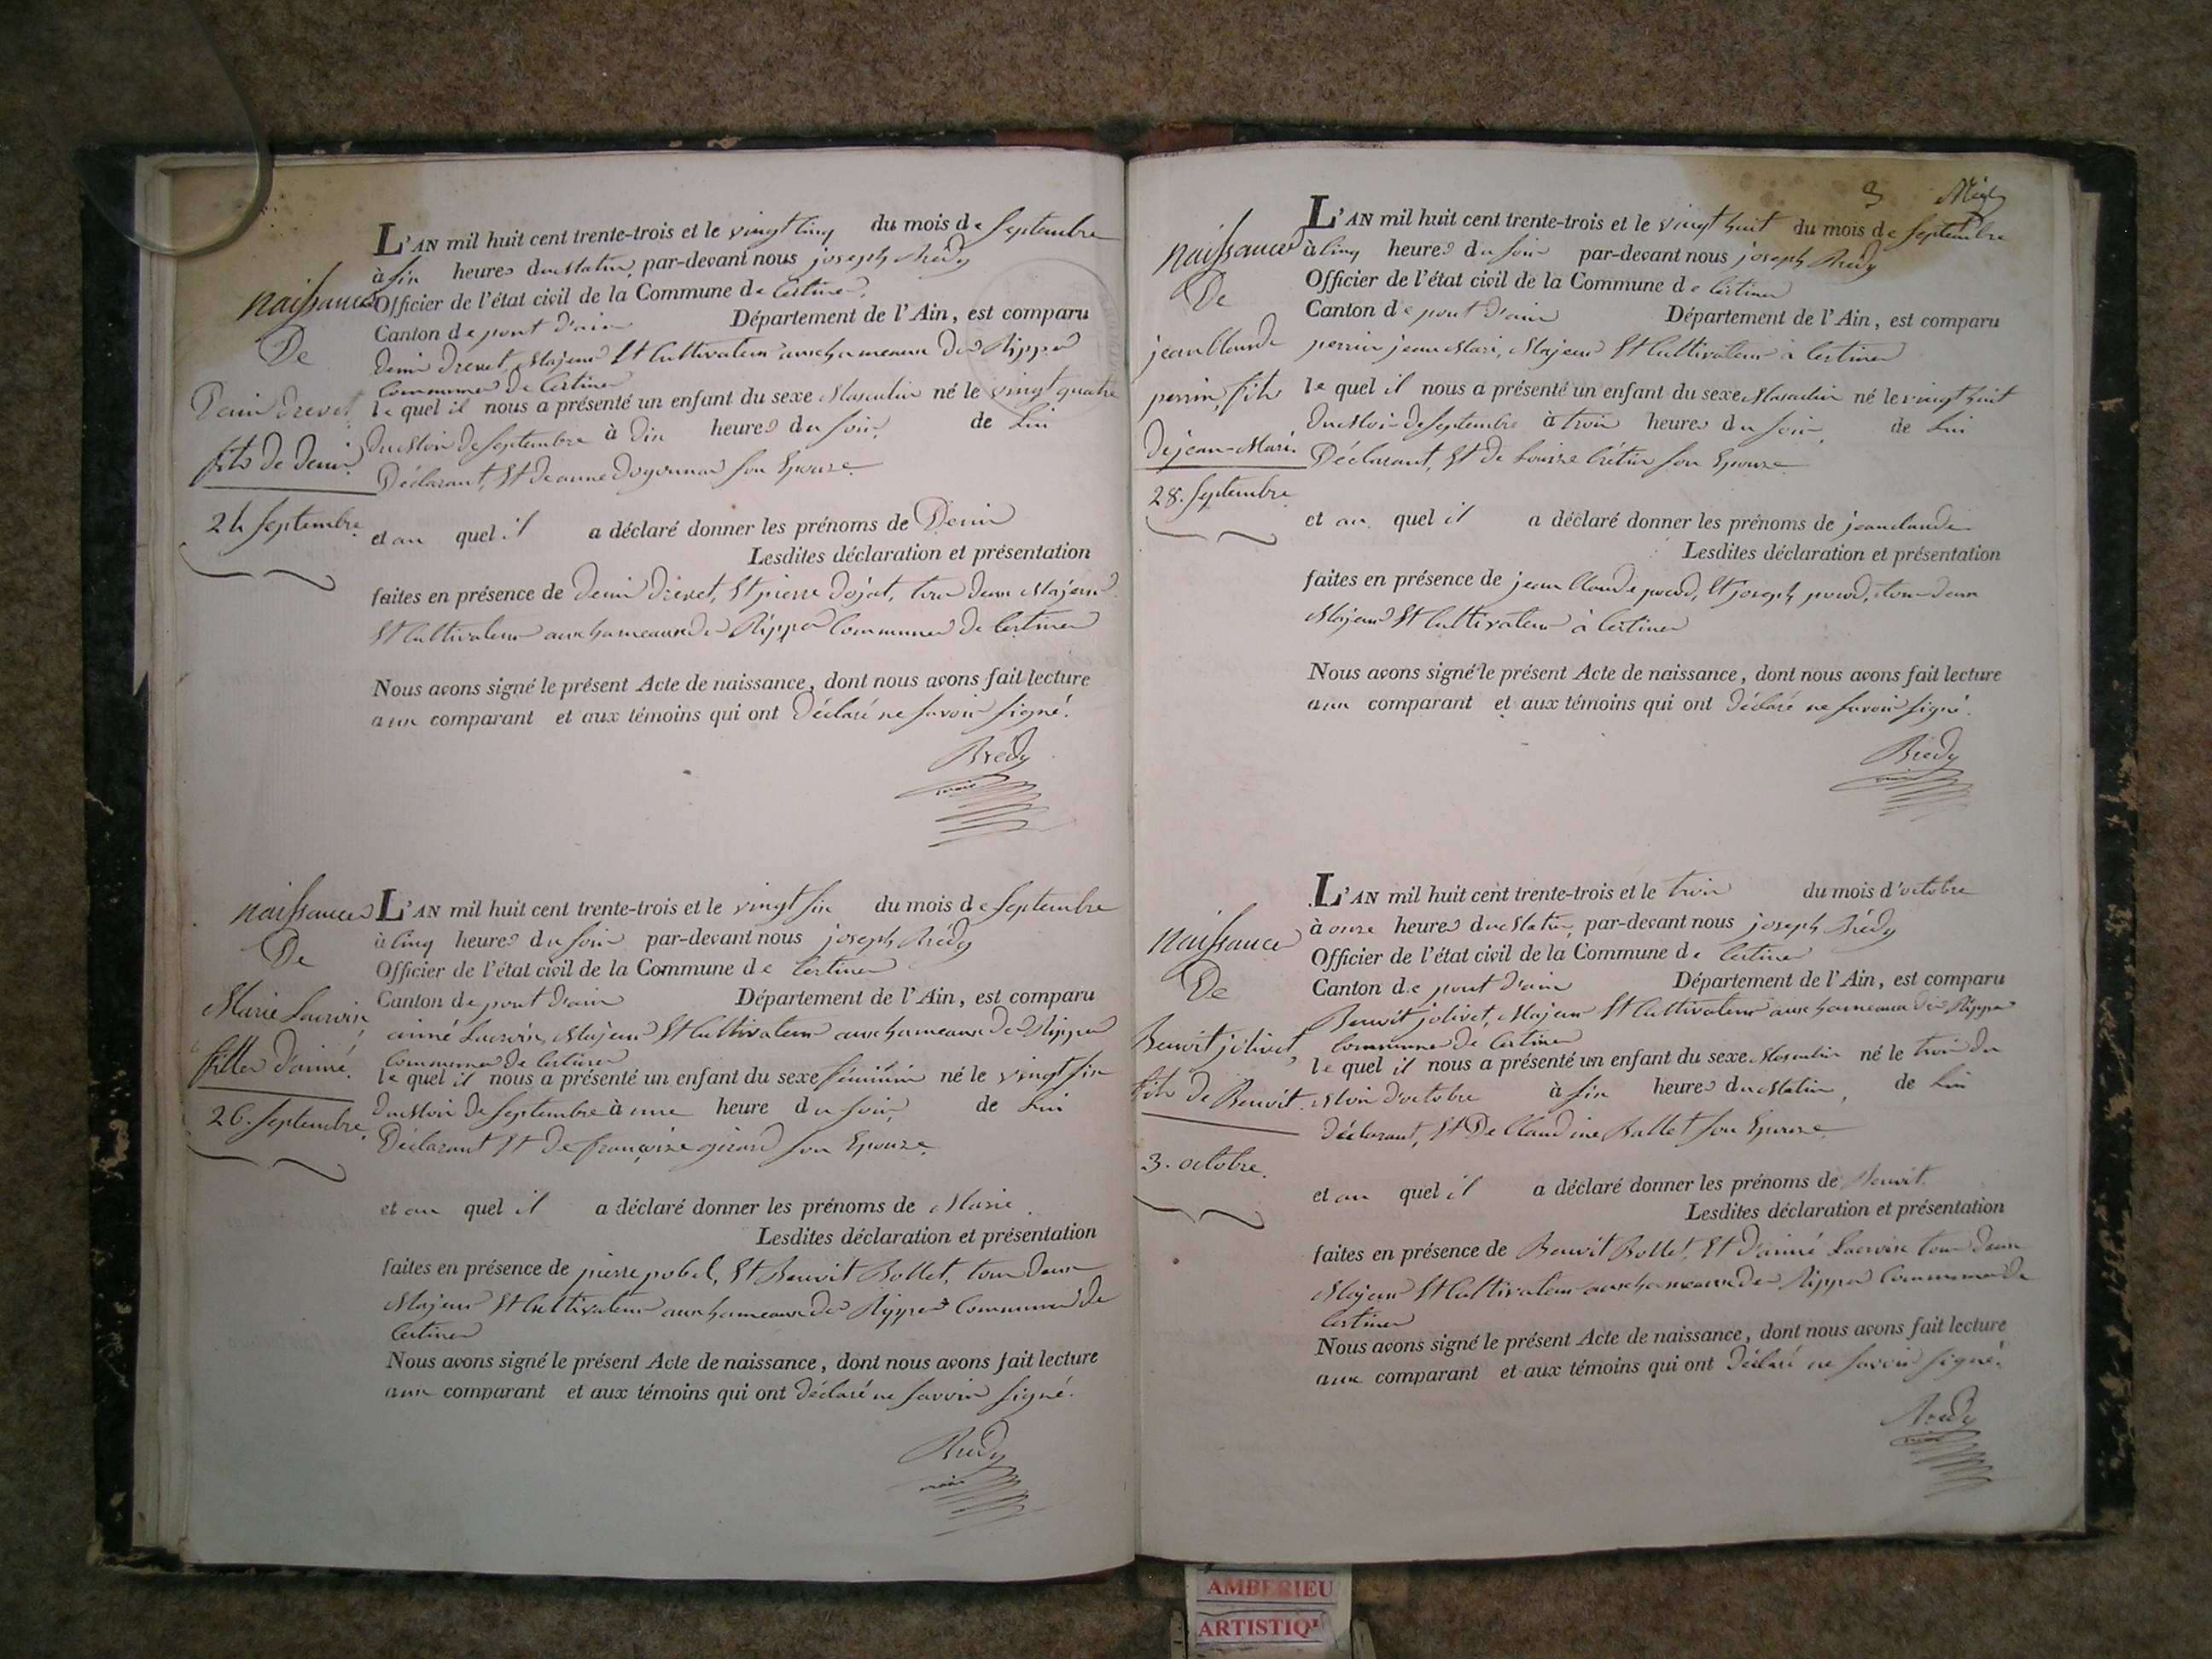 L'AN mil huit cent trente-trois et le vingt cinq du mois de Septembre
à six heures du Matin, par-devant nous joseph Brédy
naissance Officier de l'état civil de la Commune de Certines,
De Canton de pont d'ain Département de l'Ain, est comparu
Denis Drevet, Majeur Et Cultivateur aux hameaux des Rippes
Commune de Certines
Denis Drevet le quel il nous a présenté un enfant du sexe Masculin né le vingt quatre
fils de Denis du Mois de Septembre à dix heures du soir, de Lui
Déclarant, Et de anne son Epouse
24 Septembre et au quel il a déclaré donner les prénoms de Denis
Lesdites déclaration et présentation
faites en présence de Denis Drevet, Et pierre tous deux Majeurs
Et Cultivateurs aux hameaux des Rippes Commune de Certines
Nous avons signé le présent Acte de naissance, dont nous avons fait lecture
aux comparant et aux témoins qui ont Déclaré ne savoir signé.
Brédy
maire
naissance L'AN mil huit cent trente-trois et le vingt six du mois de Septembre
De à cinq heures du soir par-devant nous joseph Brédy
Officier de l'état civil de la Commune de Certines
Marie Lacroix, Canton de pont d'ain Département de l'Ain, est comparu
aimé Lacroix, Majeur Et Cultivateur aux hameaux des Rippes
fille d'aimé. Commune de Certines
le quel il nous a présenté un enfant du sexe féminin né le vingt six
26. Septembre du Mois de Septembre à une heure du soir, de Lui
Déclarant Et de françoise girard son Epouse
et au quel il a déclaré donner les prénoms de Marie
Lesdites déclaration et présentation
faites en présence de pierre pobel, Et Benoit Bollet, tous deux
Majeurs Et Cultivateurs aux hameaux des Rippes Commune de
Certines
Nous avons signé le présent Acte de naissance, dont nous avons fait lecture
aux comparant et aux témoins qui ont déclaré ne savoir signé.
Brédy
maire
3
L'AN mil huit cent trente-trois et le vingt huit du mois de Septembre
naissance à cinq heures du soir par-devant nous joseph Brédy
De Officier de l'état civil de la Commune de Certines
Canton de pont d'ain Département de l'Ain, est comparu
jean Claude perrin jean Marie, Majeur Et Cultivateur à Certines
perrin, fils le quel il nous a présenté un enfant du sexe Masculin né le vingt huit
du Mois de Septembre à trois heures du soir, de Lui
de jean-Marie Déclarant, Et de Louise Crétin son Epouse
28. Septembre et au quel il a déclaré donner les prénoms de jean claude
Lesdites déclaration et présentation
faites en présence de jean Claude Et joseph tous deux
Majeurs Et Cultivateurs à Certines
Nous avons signé le présent Acte de naissance, dont nous avons fait lecture
aux comparant et aux témoins qui ont Déclaré ne savoir signé.
Brédy
maire
L'AN mil huit cent trente-trois et le trois du mois d'octobre
à onze heures du Matin, par-devant nous joseph Brédy
naissance Officier de l'état civil de la Commune de Certines
De Canton de pont d'ain Département de l'Ain, est comparu
Benoit jolivet, Majeur Et Cultivateur aux hameaux des Rippes
Benoit jolivet, Commune de Certines
le quel il nous a présenté un enfant du sexe Masculin né le trois du
fils de Benoit. Mois d'octobre à six heures du Matin, de Lui
déclarant, Et De Claudine Ballet son Epouse
3. octobre. et au quel il a déclaré donner les prénoms de Benoit
Lesdites déclaration et présentation
faites en présence de Benoit Bollet, Et d'aimé Lacroix tous deux
Majeurs Et Cultivateurs aux hameaux des Rippes Commune de
Certines
Nous avons signé le présent Acte de naissance, dont nous avons fait lecture
aux comparant et aux témoins qui ont Déclaré ne savoir signé.
Brédy
maire
AMBERIEU
ARTISTIQ